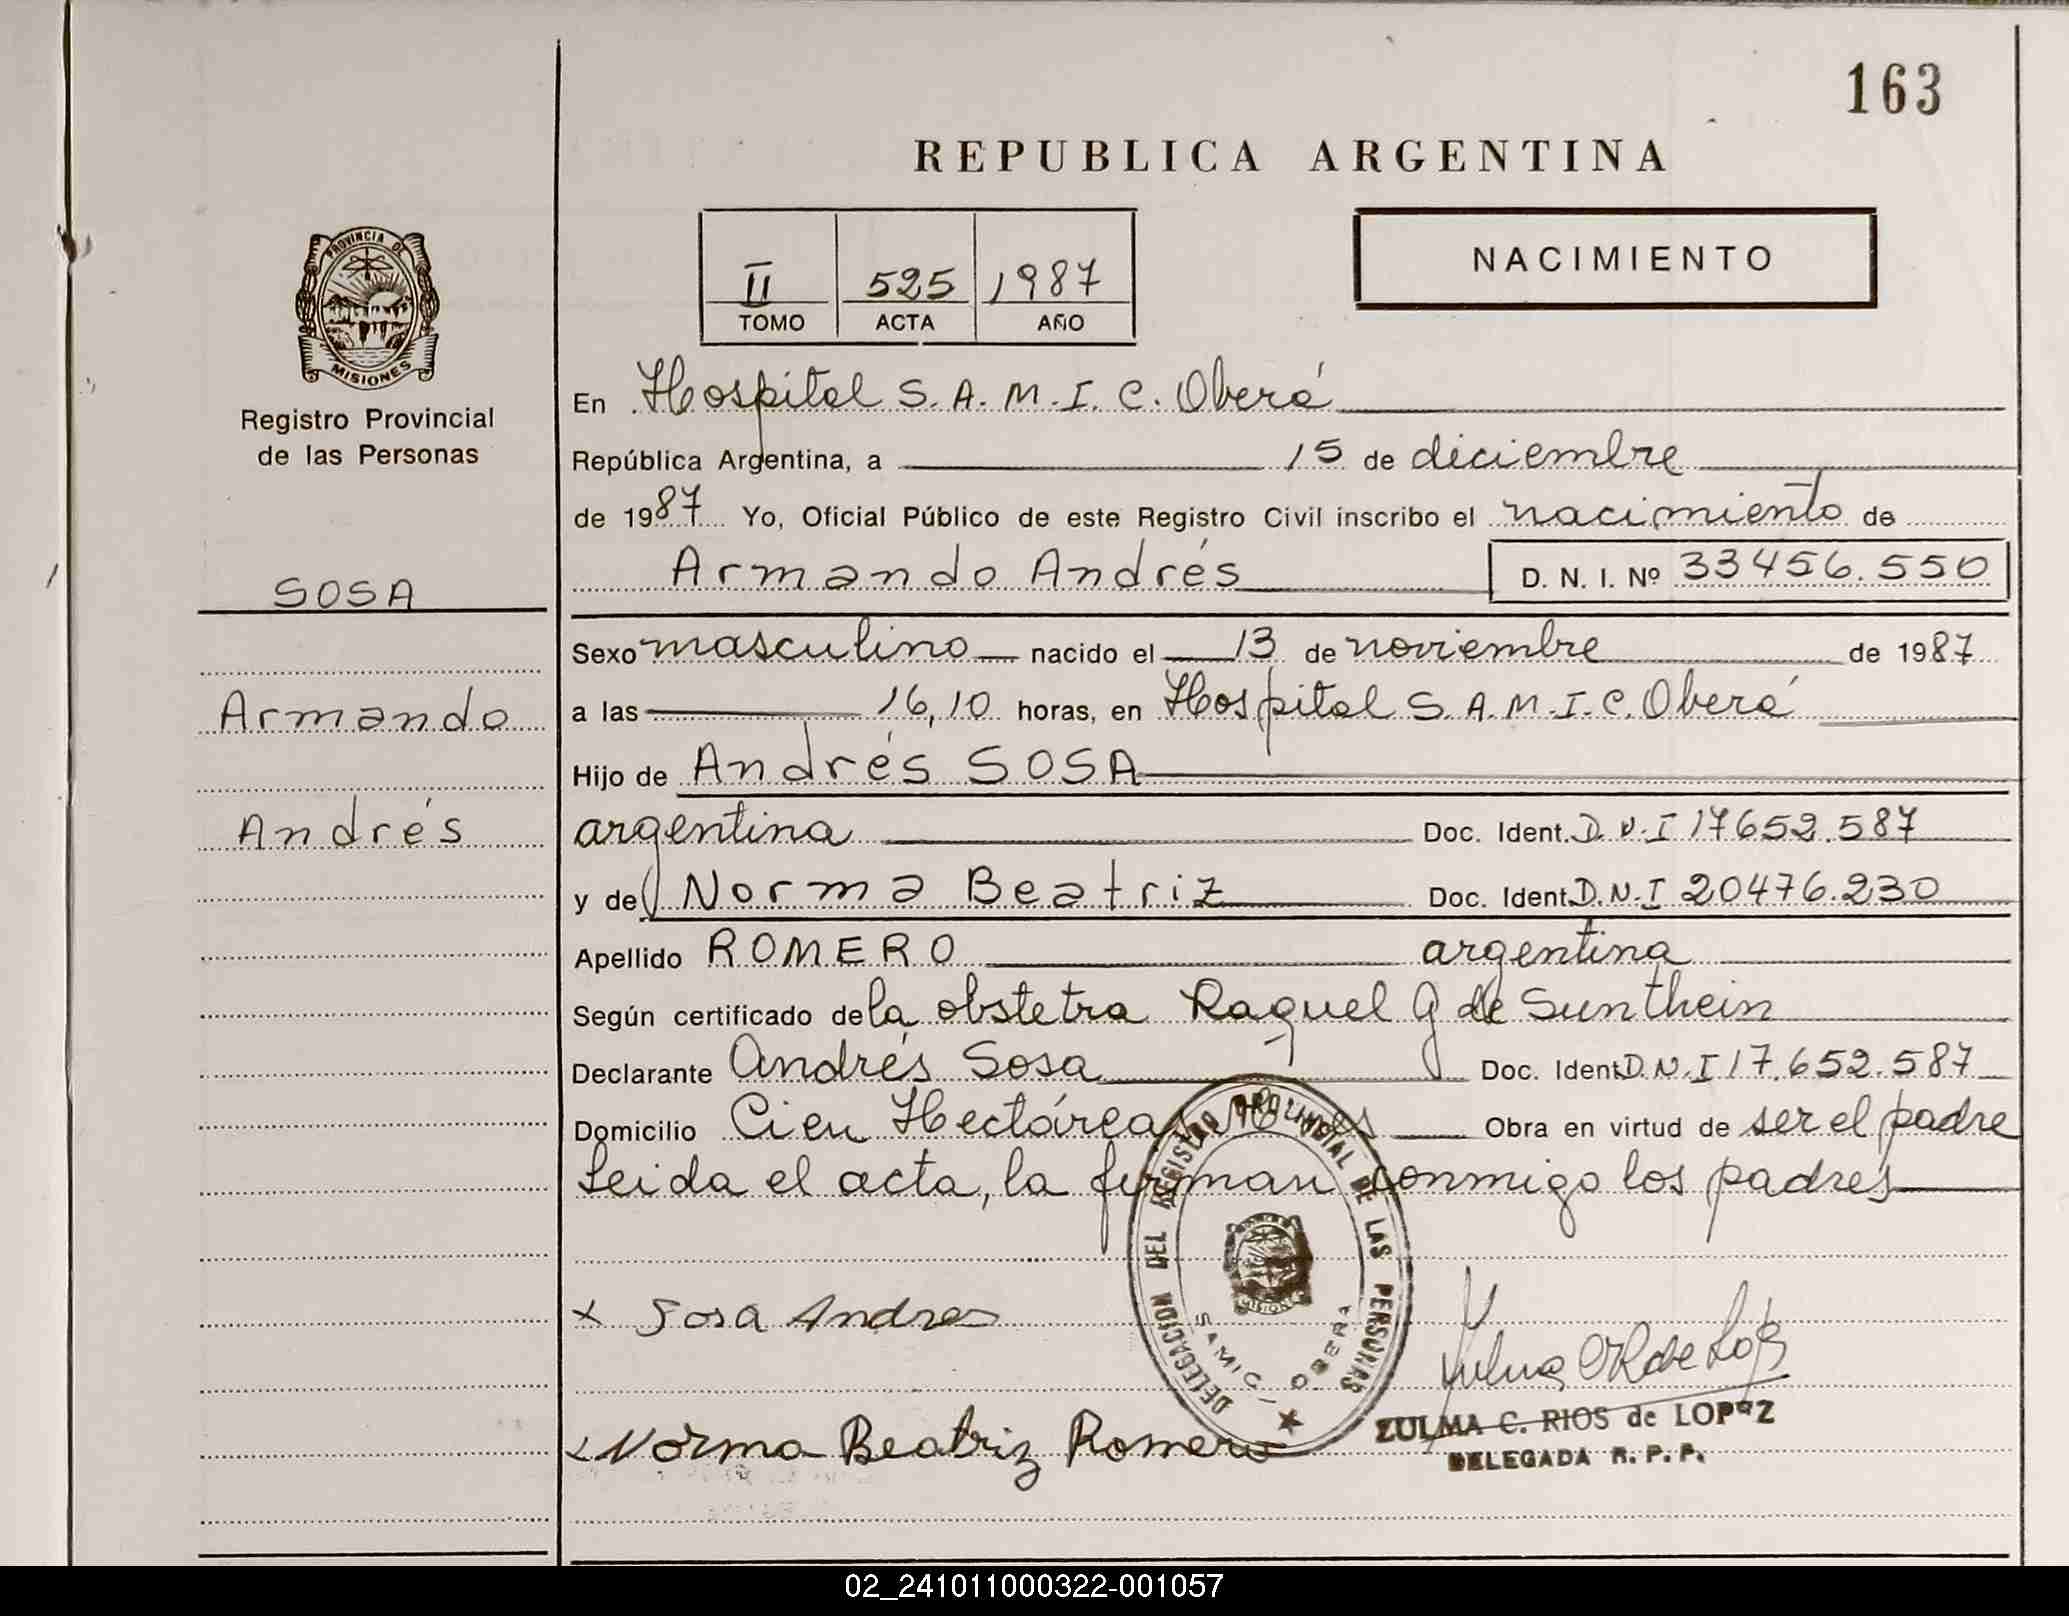 163
REPUBLICA ARGENTINA
NACIMIENTO
II 525 1987
TOMO ACTA AÑO
PROVINCIA DE
MISIONES
Registro Provincial
de las Personas
SOSA
Armando
Andrés
En Hospital S.A.M.I.C. Oberá
República Argentina, a 15 de diciembre
de 1987 Yo, Oficial Público de este Registro Civil inscribo el nacimiento de
Armando Andrés D. N. I. Nº 33456.550
Sexo masculino nacido el 13 de noviembre de 1987
a las 16,10 horas, en Hospital S.A.M.I.C. Oberá
Hijo de Andrés SOSA
argentina Doc. Ident. D.N.I 17652.587
y de Norma Beatriz Doc. Ident. D.N.I 20476.230
Apellido ROMERO argentina
Según certificado de la obstetra Raquel G de Sunthein
Declarante Andrés Sosa Doc. Ident. D.N.I 17.652.587
Domicilio Cien Hectáreas Obra en virtud de ser el padre
Leida el acta, la firman conmigo los padres
DELEGACION DEL REGISTRO PROVINCIAL DE LAS PERSONAS
MISIONES
SAMIC - OBERA
x Sosa Andres
x Norma Beatriz Romero
ZULMA C. RIOS de LOPEZ
DELEGADA R. P. P.
02_241011000322-001057